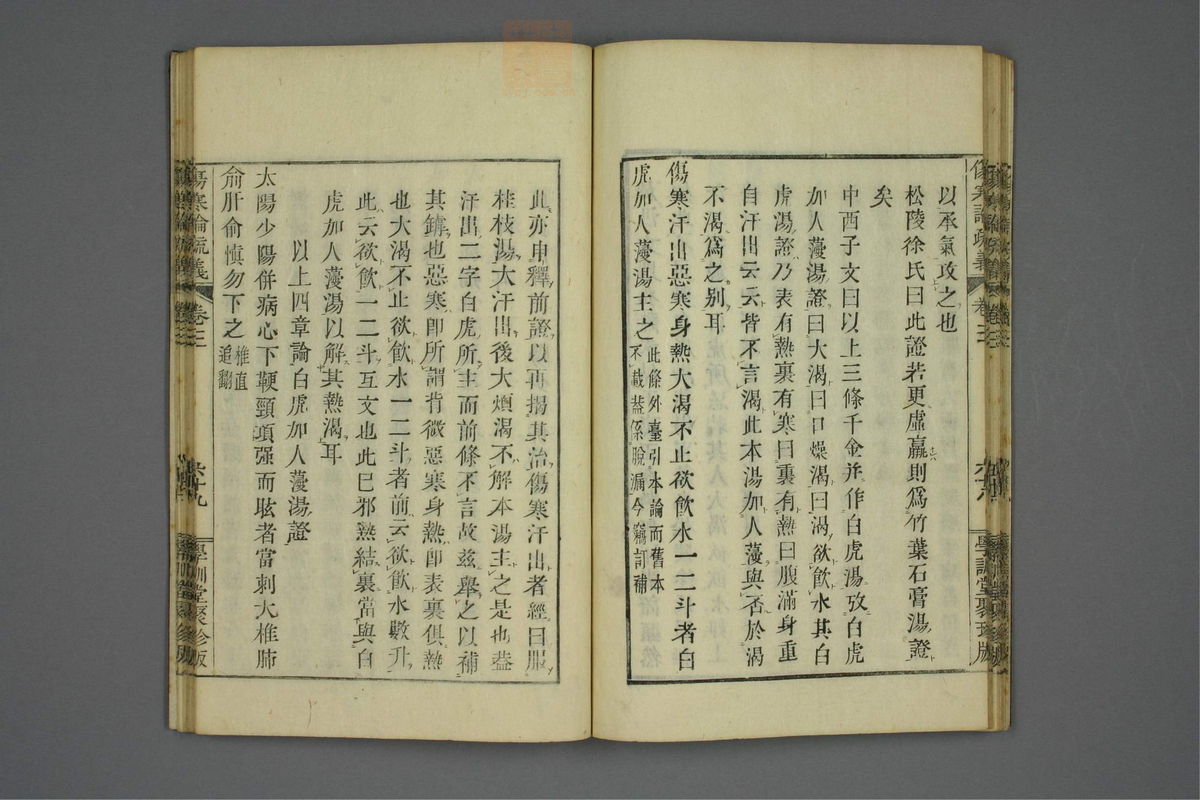 傷寒論疏義 卷三 六十八 學訓堂聚珍版
以承氣攻之也
松陵徐氏曰此證若更虛羸則爲竹葉石膏湯證
矣
中西子文曰以上三條千金并作白虎湯攷白虎
加人薓湯證曰大渴曰口燥渴曰渴欲飮水其白
虎湯證乃表有熱裏有寒曰裏有熱曰腹滿身重
自汗出云云皆不言渴此本湯加人薓與否於渴
不渴爲之别耳
傷寒汗出惡寒身熱大渴不止欲飮水一二斗者白
虎加人薓湯主之此條外臺引本論而舊本不載葢係脫漏今竊訂補
此亦申釋前證以再揭其治傷寒汗出者經曰服
桂枝湯大汗出後大煩渴不解本湯主之是也葢
汗出二字白虎所主而前條不言故茲舉之以補
其罅也惡寒卽所謂背微惡寒身熱卽表裏俱熱
也大渴不止欲飮水一二斗者前云欲飮水數升
此云欲飮一二斗互文也此巳邪熱結裏當與白
虎加人薓湯以解其熱渴耳
以上四章論白虎加人薓湯證
太陽少陽併病心下鞕頸項强而眩者當刺大椎肺
俞肝俞慎勿下之椎直追翻
傷寒論疏義 卷三 六十九 學訓堂聚珍版